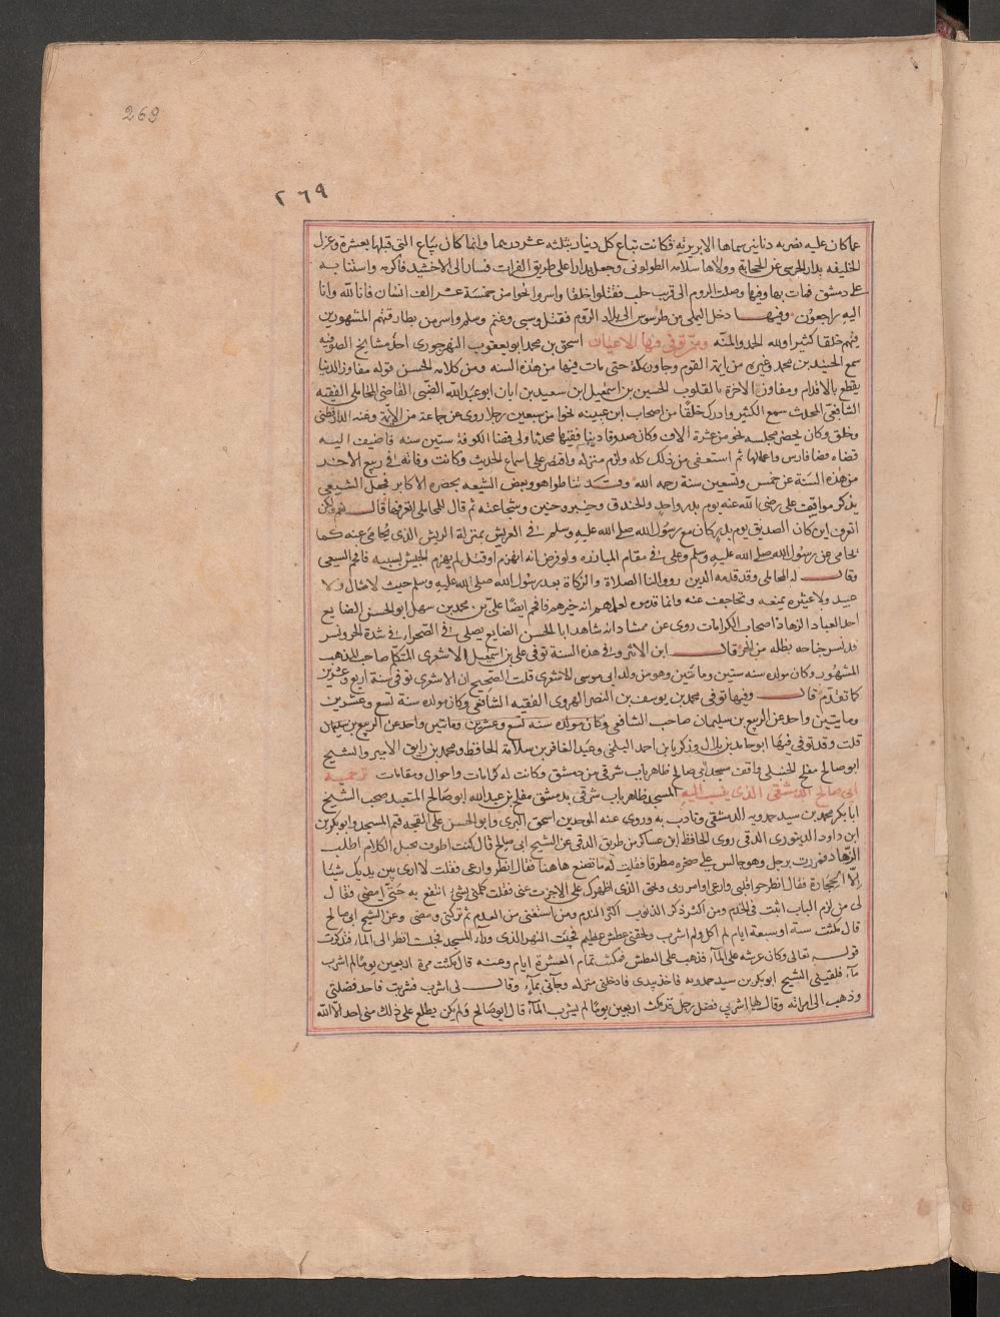 269
٢٦٩
عما كان عليه بضربه دنانير سماها الابريزيه فكانت تباع كل دينار بثلثه عشر درهما وانما كان يباع التي قبلها بعشرة وعزل
الخليفه بدار الخرسى عن الحجابة وولاها سلامه الطولونى وجعل بدارا على طريق الفرات فسار الى الاخشيد فاكرمه واستنابه
على دمشق فمات بها وفيها وصلت الروم الى قرب حلب فقتلوا خلقا واسروا نحوا من خمسة عشر الف انسان فانا لله وانا
اليه راجعون وفيها دخل الثملى من طرسوس الى بلاد الروم فقتل وسبى وغنم وسلم واسر من بطارقتهم المشهورين
فيهم خلقا كثيرا ولله الحمد والمنه ومن توفى فيها من الاعيان اسحق بن محمد ابو يعقوب النهرجورى احد مشايخ الصوفيه
سمع الجنيد بن محمد وغيره من ايمة القوم وجاور بمكة حتى مات فيها من هذه السنه ومن كلامه الحسن قوله مفاوز الدنيا
يقطع بالاقدام ومفاوز الاخرة بالقلوب الحسين بن اسمعيل ابن سعيد بن ابان ابو عبد الله الضبى القاضى المحاملى الفقيه
الشافعى المحدث سمع الكثير وادرك خلقا من اصحاب ابن عيينه نحوا من سبعين رجلا روى عن جماعة من الائمة وعنه الدارقطنى
وخلق وكان يحضر مجلسه نحو من عشرة الاف وكان صدوقا دينا فقيها محدثا ولى قضا الكوفة ستين سنه فاضيف اليه
قضاء فارس واعمالها ثم استعفى من ذلك كله ولزم منزله واقتصر على اسماع الحديث وكانت وفاته فى ربيع الاخر
من هذه السنة عن خمس وتسعين سنة رحمه الله وقد تناظر هو وبعض الشيعه بحضره الاكابر فجعل الشيعى
يذكر مواقيت على رضى الله عنه يوم بدر واحد والخندق وخيبر وحنين وشجاعته ثم قال للمحاملى اتعرفها قال نعم ولكن
اتعرف اين كان الصديق يوم بدر كان مع رسول الله صلى الله عليه وسلم فى العريش بمنزلة الريس الذى يحامى عنه كما
يحامى عن رسول الله صلى الله عليه وسلم وعلى فى مقام المبارزه ولو فرض انه انهزم او قتل لم يهزم الجيش بسببه فافحم الشيعى
وقال له المحاملى وقد قدمه الذين رووا لنا الصلاة والزكاة بعد رسول الله صلى الله عليه وسلم حيث لا مال ولا
عبيد ولا عشيره يمنعه وتحاجف عنه وانما قدموه لعلمهم انه خيرهم فافحم ايضا على بن محمد بن سهل ابو الحسن الصايع
احد العباد الزهاد اصحاب الكرامات روى عن ممشاد انه شاهد ابا الحسن الصايع يصلى فى الصحراء فى شدة الحر ونسر
قد نشر جناحه يظله من الحر قال ابن الاثير وفى هذه السنة توفى على بن اسمعيل الاشعرى المتكلم صاحب المذهب
المشهور وكان مولده سنه ستين ومائتين وهو من ولد ابى موسى الاشعرى قلت الصحيح ان الاشعرى توفى سنة اربع وعشرين
كما تقدم قال وفيها توفى محمد بن يوسف بن النضر الهروى الفقيه الشافعى وكان مولده سنة تسع وعشرين
ومايتين واخذ عن الربيع بن سليمان صاحب الشافعى وكان مولده سنه تسع وعشرين ومايتين واخذ عن الربيع بن سليمان
قلت وقد توفى فيها ابو حامد بن بلال وزكريا بن احمد البلخى وعبد الغافر بن سلامة الحافظ ومحمد بن رايق الامير والشيخ
ابو صالح مفلح الحنبلى واقف مسجد ابى صالح ظاهر باب شرقى من دمشق وكانت له كرامات واحوال ومقامات ترجمة
ابى صالح الدمشقى الذى ينسب اليه المسجد ظاهر باب شرقى بدمشق مفلح بن عبد الله ابو صالح المتعبد صحب الشيخ
ابا بكر محمد بن سيد حمدويه الدمشقى وتادب به وروى عنه الموحد بن اسحق البرى وابو الحسن على القجة قيم المسجد وابو بكر بن
ابن داود الدينورى الدقى روى الحافظ ابن عساكر من طريق الدقى عن الشيخ ابى صالح قال كنت اطوف بجبل اللكام اطلب
الزهاد فمررت برجل وهو جالس على صخره مطرقا فقلت له ما تصنع هاهنا فقال انظر وارعى فقلت لا ارى بين يديك شيئا
الا الحجارة فقال انظر خواطر قلبى وارعى اوامر ربى وبحق الذى اظهرك على الا جزت عنى فقلت كلمنى بشئ انتفع به حتى امضى فقال
لى من لزم الباب اثبت فى الخدم ومن اكثر ذكر الذنوب اكثر الندم ومن استغنى من العدم ثم تركنى ومضى وعن الشيخ ابى صالح
قال مكثت ستة او سبعة ايام لم اكل ولم اشرب ولحقنى عطش عظيم فجئت النهر الذى وراء المسجد فجلست انظر الى الماء فتذكرت
قوله تعالى وكان عرشه على الماء فذهب على العطش فمكثت تمام العشرة ايام وعنه قال مكثت مرة اربعين يوما لم اشرب
ماء فلقينى الشيخ ابو بكر بن سيد حمدويه فاخذ بيدى فادخلنى منزله وجآنى بمآء وقال لى اشرب فشربت فاخذ فضلتى
وذهب الى امراته وقال لها اشربى فضل رجل قد مكث اربعين يوما لم يشرب المآء قال ابو صالح ولم يكن يطلع على ذلك منى احد الا الله